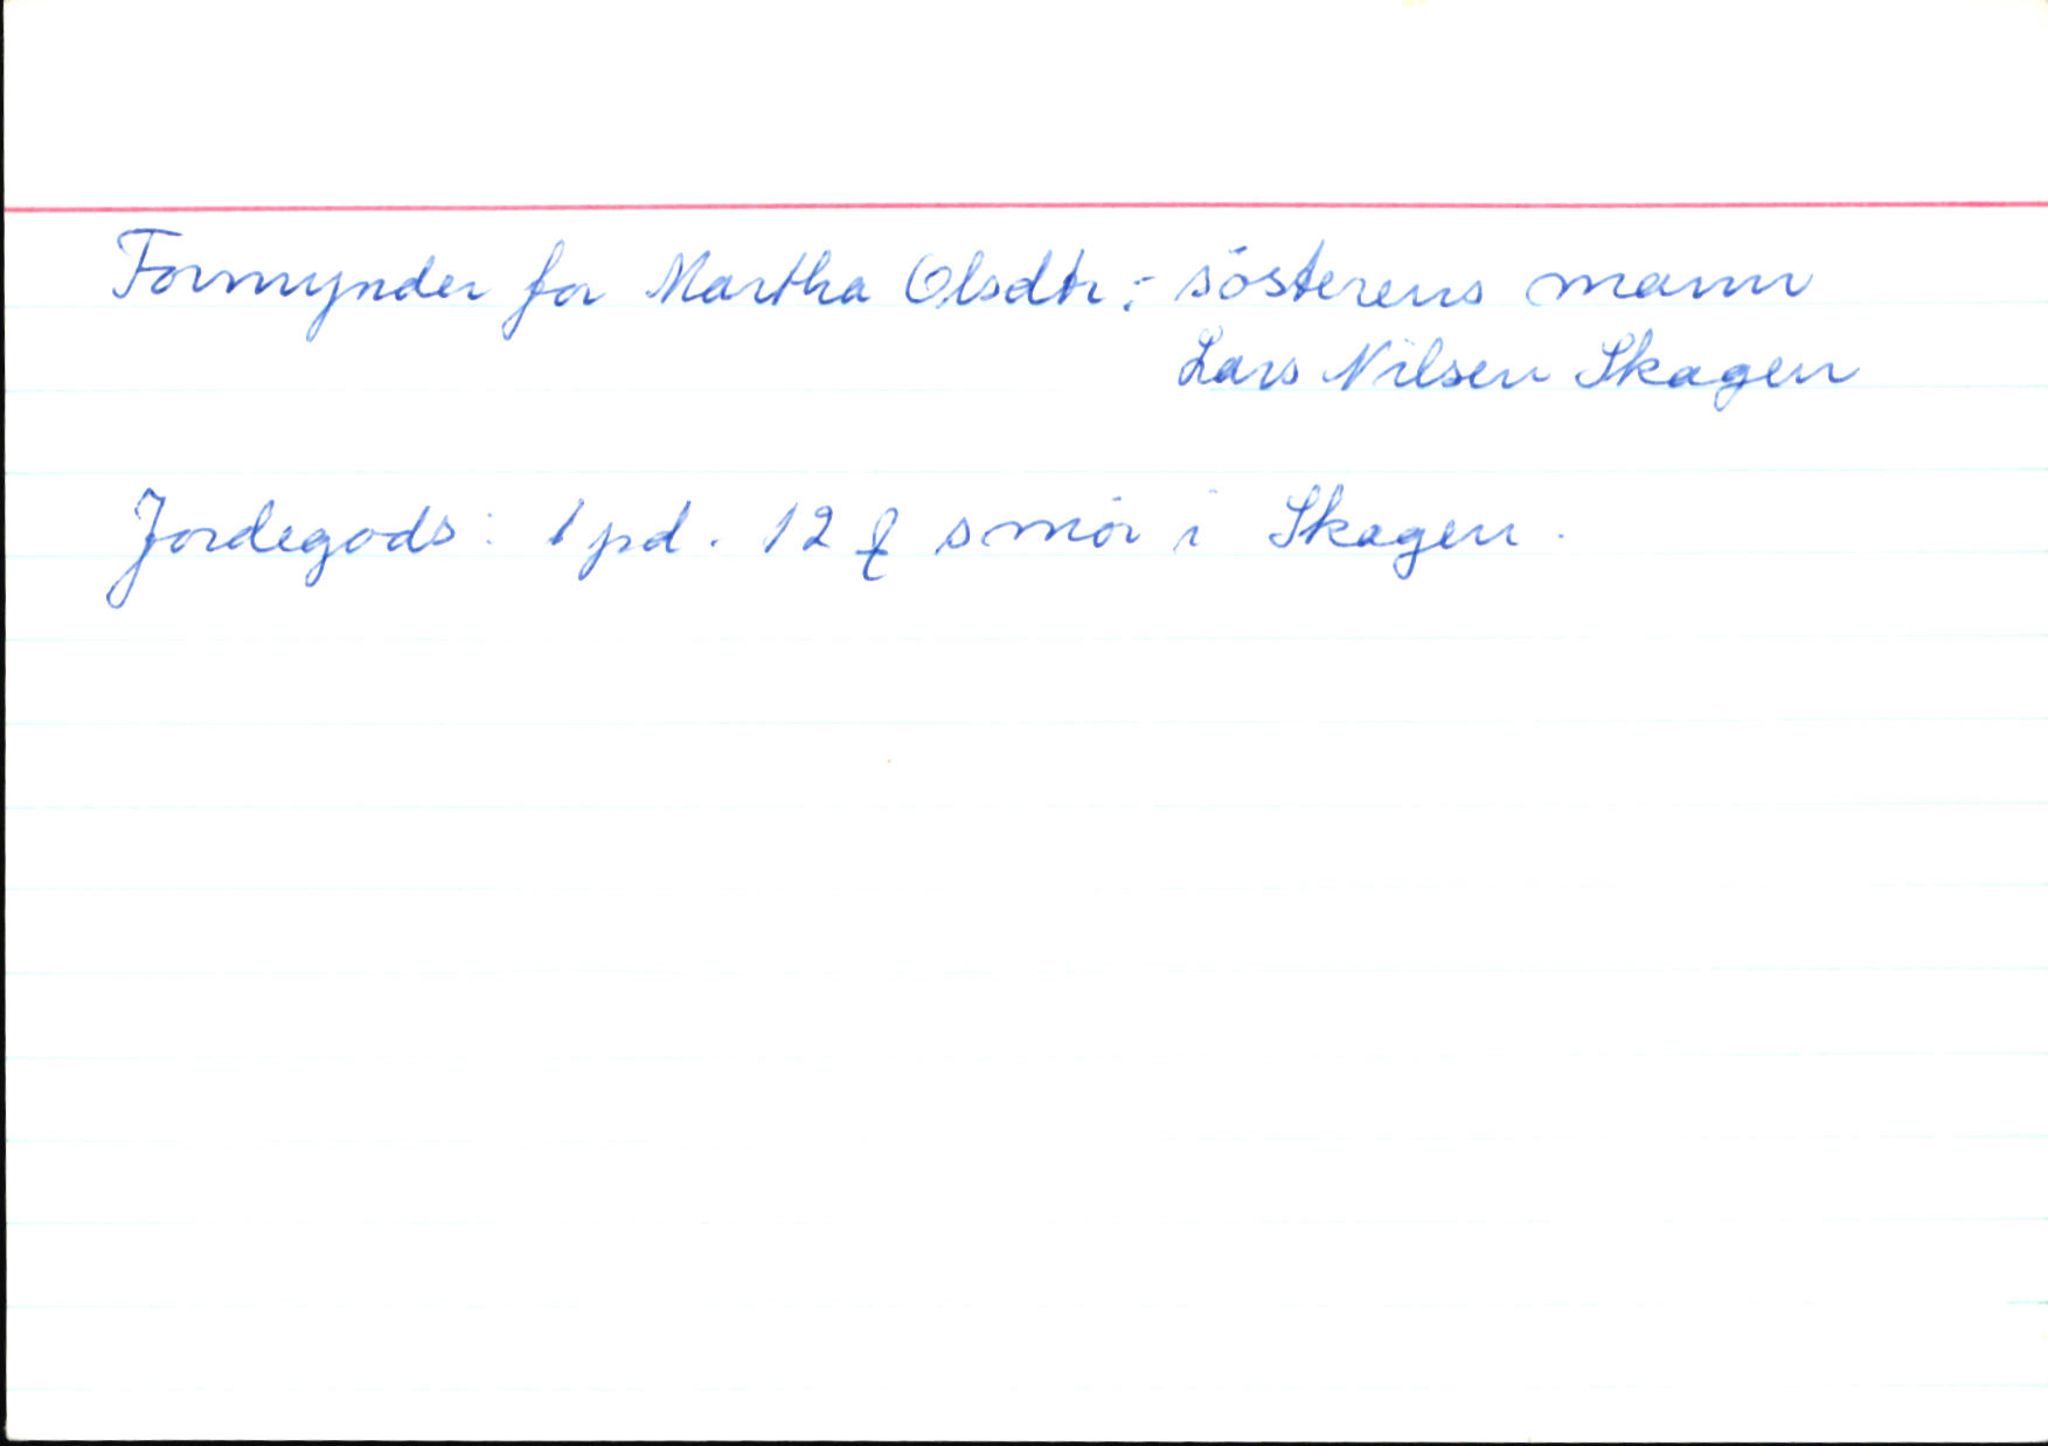 Formynder for Martha Olsdtr:- sösterens mann
Lars Nilsen Skagen
Jordegods: 1 pd. 12 ₤ smör i Skagen.